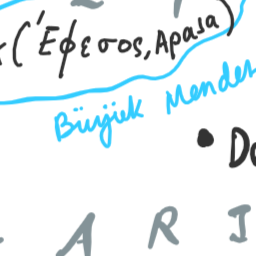 (Έφεσος, Apasa)
Büyük Mender
Do
A R I